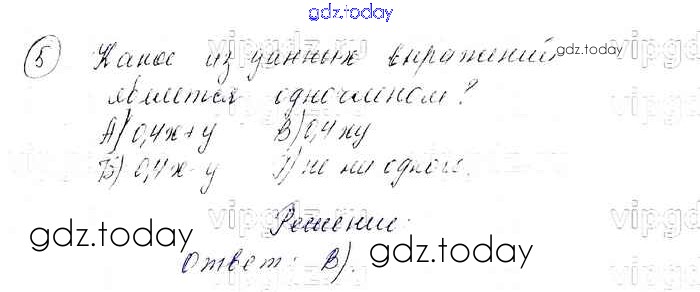 gdz.today
5 Какое из данных выражений
является одночленом?
А) 0,4x+y В) 0,4xy
Б) 0,4x-y Г) не ни одного.
Решение:
Ответ: В).
gdz.today
gdz.today
gdz.today